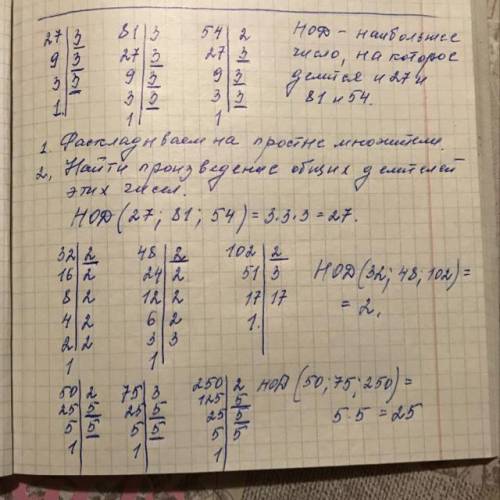 27 | 3   81 | 3   54 | 2   НОД - наибольшее
9 | 3   27 | 3   27 | 3   число, на которое
3 | 3   9 | 3   9 | 3   делится и 27 и
1   3 | 3   3 | 3   81 и 54.
1   1
1. Раскладываем на простые множители.
2. Найти произведение общих делителей
этих чисел.
НОД (27; 81; 54) = 3·3·3 = 27.
32 | 2   48 | 2   102 | 2
16 | 2   24 | 2   51 | 3   НОД (32; 48; 102) =
8 | 2   12 | 2   17 | 17   = 2.
4 | 2   6 | 2   1.
2 | 2   3 | 3
1   1
50 | 2   75 | 3   250 | 2   НОД (50; 75; 250) =
25 | 5   25 | 5   125 | 5   5·5 = 25
5 | 5   5 | 5   25 | 5
1   1   5 | 5
1